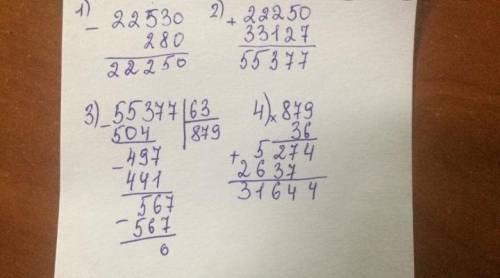 1) - 22530
280
22250
2) + 22250
33127
55377
3) - 55377 | 63
504 | 879
- 497
441
- 567
567
0
4) × 879
36
+ 5274
2637
31644